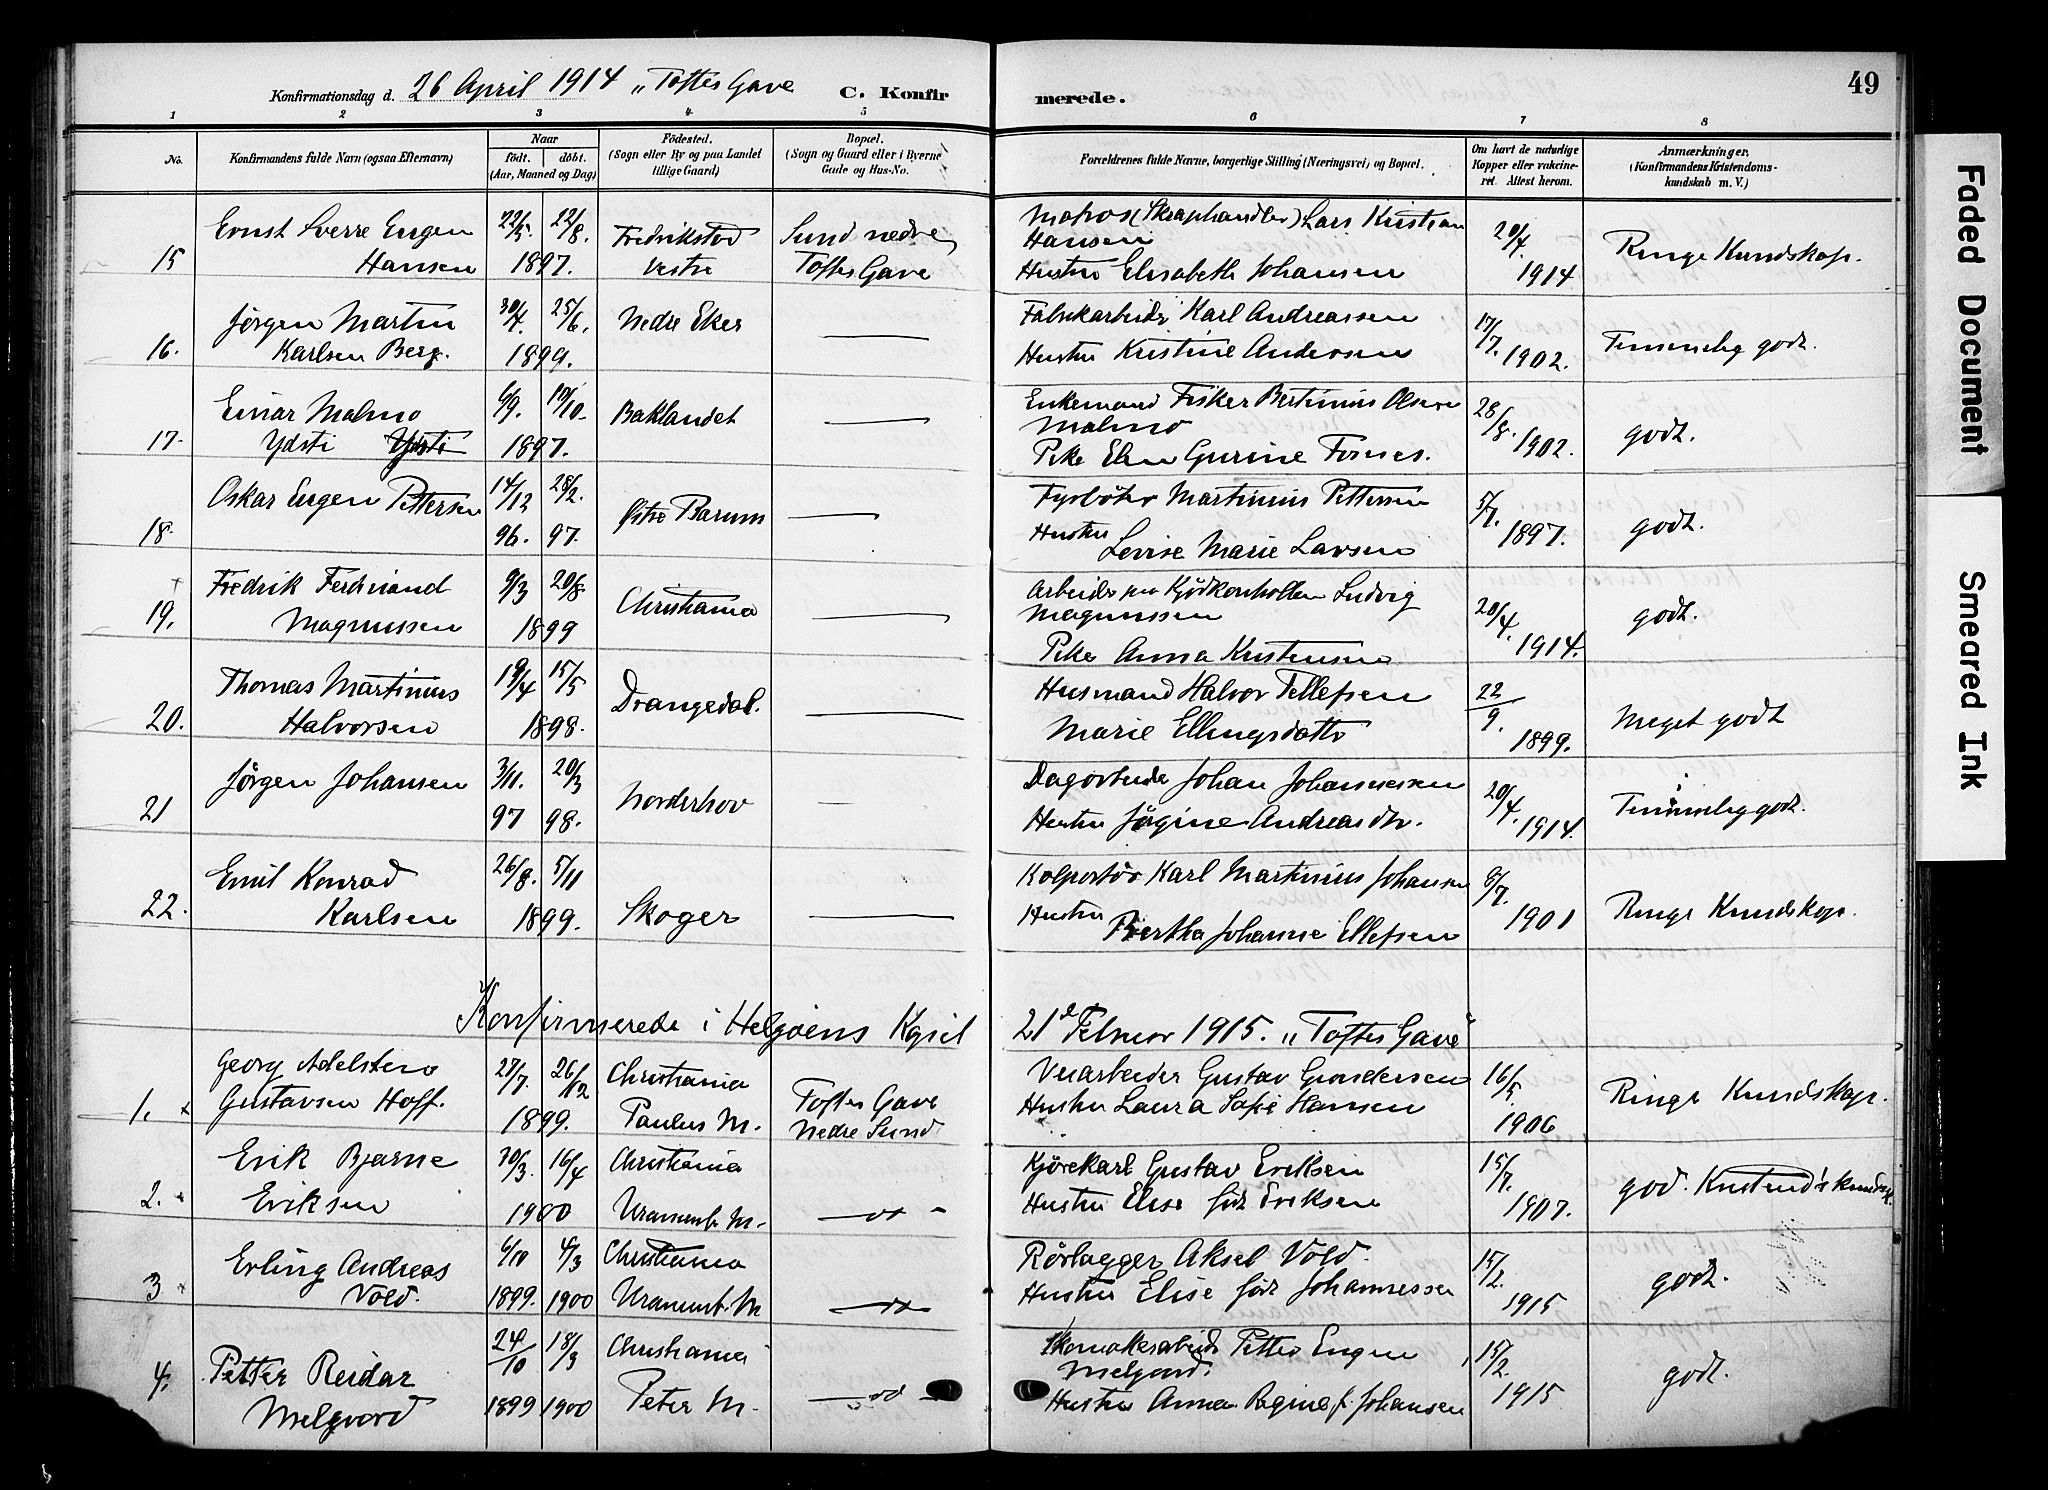 Konfirmationsdag d. 26 April 1914 „Toftes Gave C. Konfirmerede. 49
1 2 3 4 5 6 7 8
No. Konfirmandens fulde Navn (ogsaa Efternavn) Naar födt. döbt. (Aar, Maaned og Dag) Födested. (Sogn eller By og paa Landet tillige Gaard) Bopæl. (Sogn og Gaard eller i Byerne Gade og Hus-No. Forældrenes fulde Navne, borgerlige Stilling (Næringsvei) og Bopæl. Om havt de naturlige Kopper eller vakcineret. Attest herom. Anmærkninger. (Konfirmandens Kristendomskundskab m. V.)
Ernst Sverre Eugen 22/5. 22/8. Fredrikstad Sund nedre Matros (Skraphandler) Lars Kristian 20/4
Hansen
15 Hansen 1897. Vestre Toftes Gave Hustru Elisabeth Johansen 1914 Ringe Kundskap.
Jørgen Martin 30/4. 25/6. Nedre Eker Fabrikarbeider Karl Andreassen 17/7.
16. Karlsen Berg. 1899. — Hustru Kristine Andersen 1902. Temmelig godt.
Einar Malmo 6/9. 10/10. Baklandet — Enkemand Fisker Bertinius Olsen 28/8.
Malmo
17. Ydsti Ydsti 1897. Pike Elen Gurine Fornes. 1902. godt.
Oskar Eugen Pettersen 14/12 28/2. Østre Bærum — Fyrbøter Martinius Pettersen 5/7.
18. 96. 97. Hustru Levise Marie Larsen 1897. godt.
Fredrik Ferdinand 9/3 20/8 Christiania — Arbeider paa Kjødkontrollen Ludvig
Magnussen 20/4.
19. Magnussen 1899 Pike Anna Kristensen 1914. godt.
Thomas Martinius 19/4 15/5 Drangedal. — Husmand Halvor Tellefsen 22/9.
20. Halvorsen 1898. Marie Ellingsdatter 1899. Meget godt
Jørgen Johansen 3/11. 20/3 Norderhov — Dagarbeider Johan Johannessen 20/4
21 97 98. Hustru Jørgine Andreasdtr. 1914. Temmelig godt.
Emil Konrad 26/8. 5/11 Kolportør Karl Martinius Johansen 8/7.
22. Karlsen 1899. Skoger — Hustru Bertha Johanne Ellefsen 1901 Ringe Kundskap.
Konfirmerede i Helgøens Kgsel 21d Februar 1915. „Toftes Gave"
Georg Adelsten 27/7. 26/12 Christiania Toftes Gave Veiarbeider Gustav Gundersen 16/5
1. Gustavsen Hoff. 1899. Paulus M. Nedre Sund Hustru Laura Sofie Hansen 1906 Ringe Kundskap.
Erik Bjarne 30/3. 16/4 Christiania Kjørekarl Gustav Eriksen 15/7.
2. Eriksen 1900 Uranienb. M. Hustru Elise født Eriksen 1907. god Kristendskundsk.
Erling Andreas 6/10 4/3 Christiania Rørlægger Aksel Vold. 15/2.
3 Vold. 1899. 1900 Uranienb. M. Hustru Elise født Johannessen 1915 godt.
Petter Reidar 24/10 18/3 Christiania Skomakerarbeid. Petter Eugen 15/2.
Melgaard.
4. Melgaard 1899 1900 Peter M. Hustru Anna Regine f. Johansen 1915 godt.
Faded Document
Smeared Ink